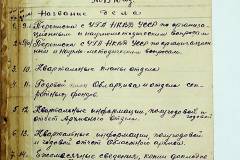 Название дела
1. 9. Переписка с ЧГА НКВД УССР по организа-
ционным и научнометодическим вопросам
2. Переписка с ЧГА НКВД УССР по организацион-
ным и научно-методическим вопросам
3. 10. Квартальные планы отдела
4. 11. Годовой план Облархива и отдела сек-
ретных фондов
5. 12. Квартальные информации, полугодовой и
отчет Архивного отдела
6. 13. Квартальные информации, полугодовой
и годовой отчет Областного архива
14. Ежемесячные сведения, копии